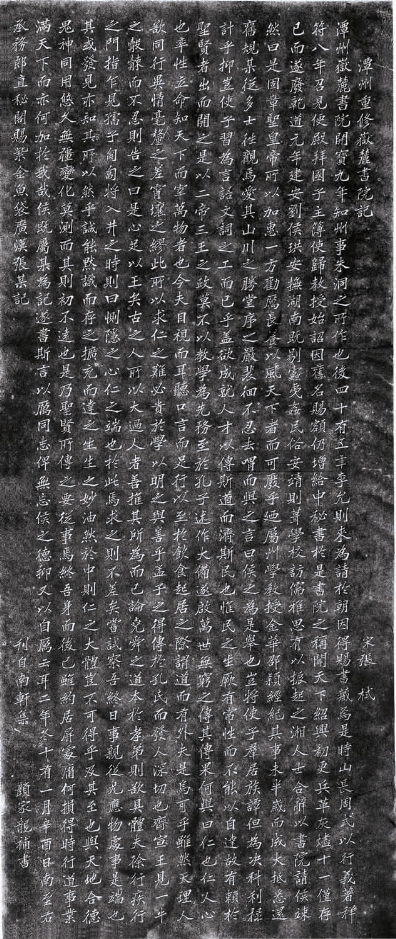 潭州重修嶽麓書院記
宋張栻
潭州嶽麓書院開寶九年知州事朱洞之所作也後四十有五年李允則來為請於朝因得賜書藏焉是時山長周式以行義著祥
符八年召見便殿拜國子主簿使歸教授始詔因舊名賜額仍增給中秘書於是書院之稱聞天下紹興初更兵革灰燼十一僅存
已而遂廢乾道元年建安劉侯珙安撫湖南既剔蠹夷姦民俗安靖則葺學校訪儒雅思有以振起之湘人士合辭以書院請侯竦
然曰是固章聖皇帝所以加惠一方勸厲長養以風天下者而可廢乎乃屬州學教授金華邵穎經紀其事未半歲而成大抵悉還
舊規某從多士往觀焉愛其山川之勝堂序之嚴裴徊不忍去喟而與之言曰侯之為是舉也豈將使子羣居族譚但為決科利祿
計乎抑豈使子習為言語文詞之工而已乎蓋欲成就人才以傳斯道而濟斯民也惟民之生厥有常性而不能以自達故有賴於
聖賢者出而開之是以二帝三王之政莫不以教學為先務至於孔子述作大備遂啟萬世無窮之傳其傳果何與曰仁也仁人心
也率性立命知天下而宰萬物者也今夫目視而耳聽口言而足行以至於飲食起居之際謂道而有外夫是焉可乎雖然天理人
欲同行異情毫釐之差霄壤之繆此所以求仁之難必貴於學以明之與善乎孟子之得傳於孔氏而發人深切也齊宣王見一牛
之觳觫而不忍則告之曰是心足以王矣古之人所以大過人者善推其所為而已論堯舜之道本於孝弟則欲其體夫徐行疾行
之間指乍見孺子匍匐將入井之時則曰惻隱之心仁之端也於此焉求之則不差矣嘗試察吾終日事親從兄應物處事是端也
其或發見亦知其所以然乎誠能默識而存之擴充而達之生生之妙油然於中則仁之大體豈不可得乎及其至也與天地合德
鬼神同用悠久無疆變化莫測而其則初不遠也是乃聖賢所傳之要從事焉終吾身而後已雖約居屏處庸何損得時行道事業
滿天下而亦何加於我哉侯既屬某為記遂書斯言以厲同志俾無忘侯之德抑又以自厲云耳二年冬十有一月辛酉日南至右
承務郎直秘閣賜紫金魚袋廣漢張某記
刊自南軒集
顏家龍補書